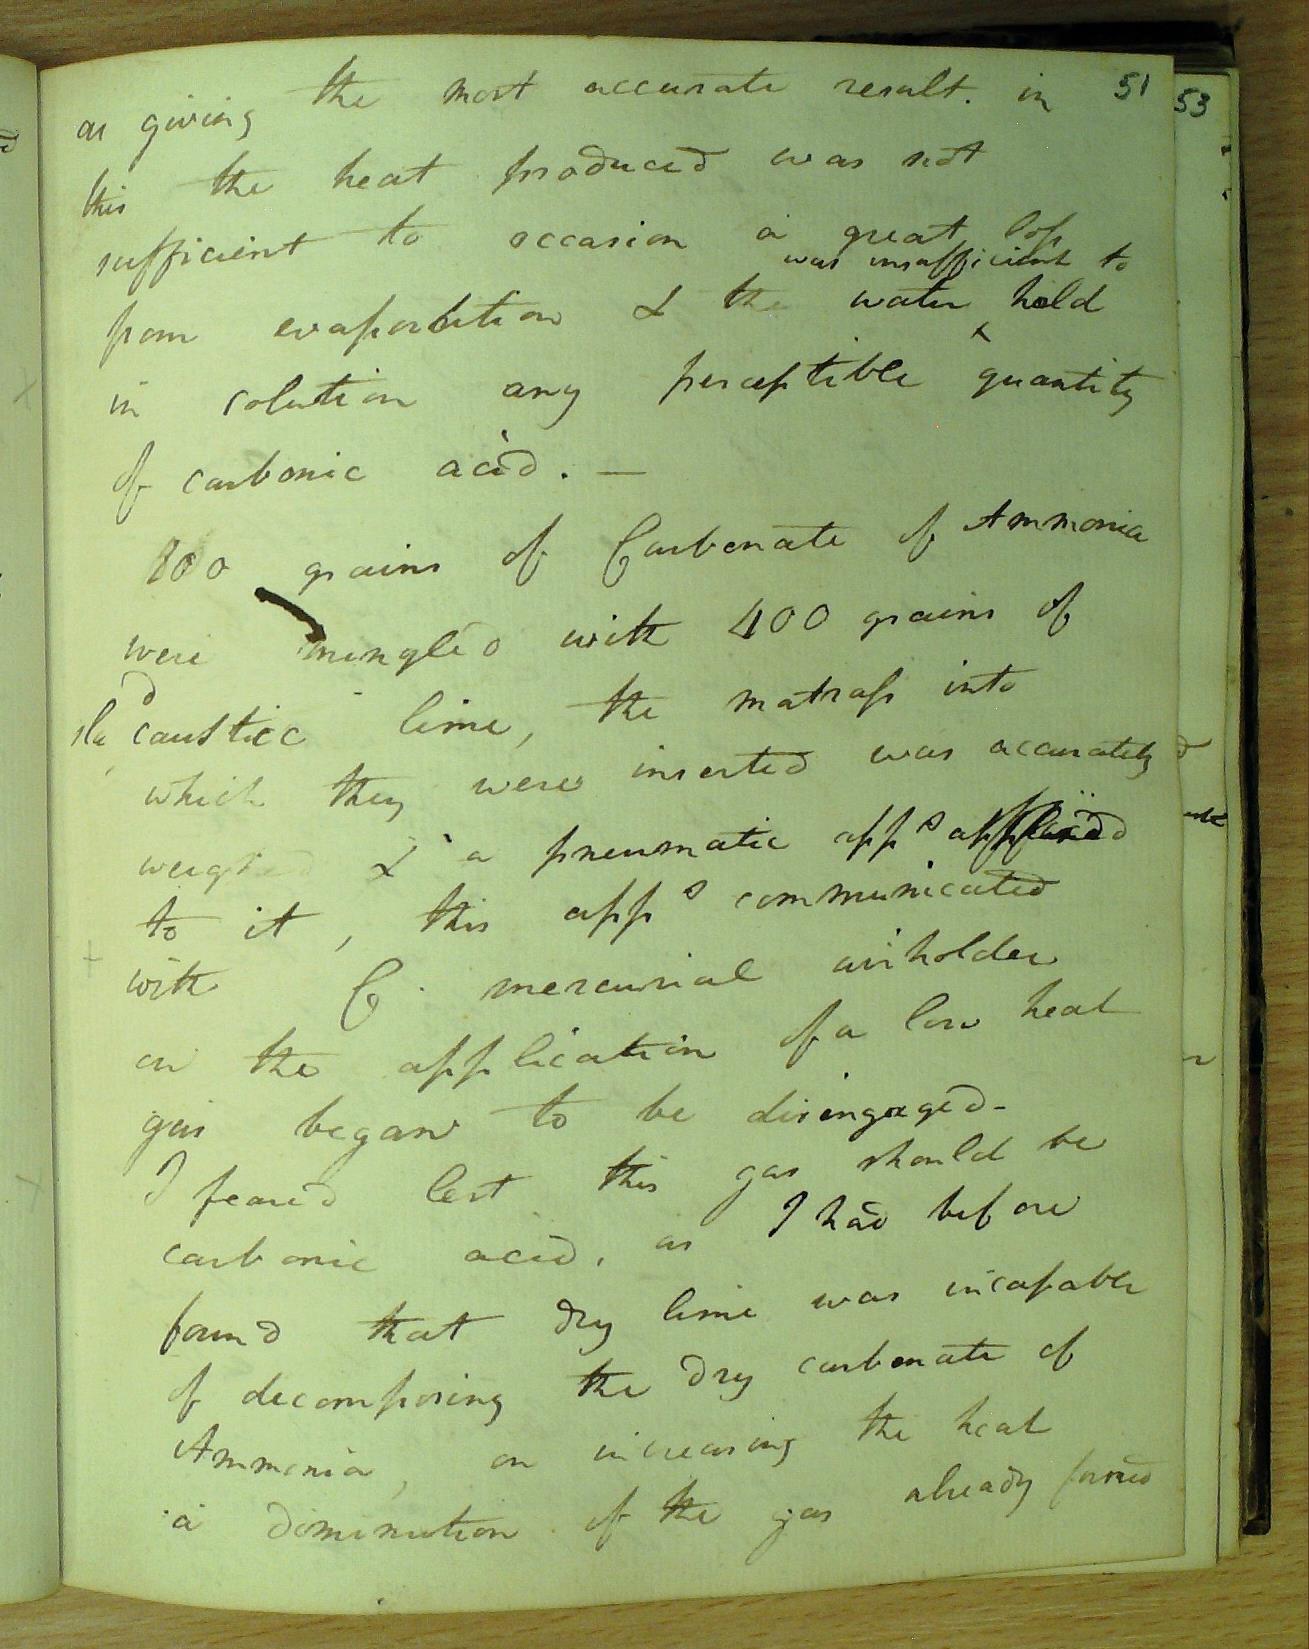 51
53
as giving the most accurate result. in
this the heat produced was not
sufficient to occasion a great loss
was insufficient to
from evaporation & the water ^ hold
in solution any perceptible quantity
of carbonic acid. —
800 grains of Carbonate of Ammonia
were mingled with 400 grains of
caustic lime, the matrass into
which they were inserted was accurately
weighed & a pneumatic apps
to it, this apps communicated
with C. mercurial airholder
on the application of a low heat
gas began to be disengaged-
I feared lest this gas should be
carbonic acid, as I had before
found that dry lime was incapable
of decomposing the dry carbonate of
Ammonia, on increasing the heat
a diminution of the gas already formed